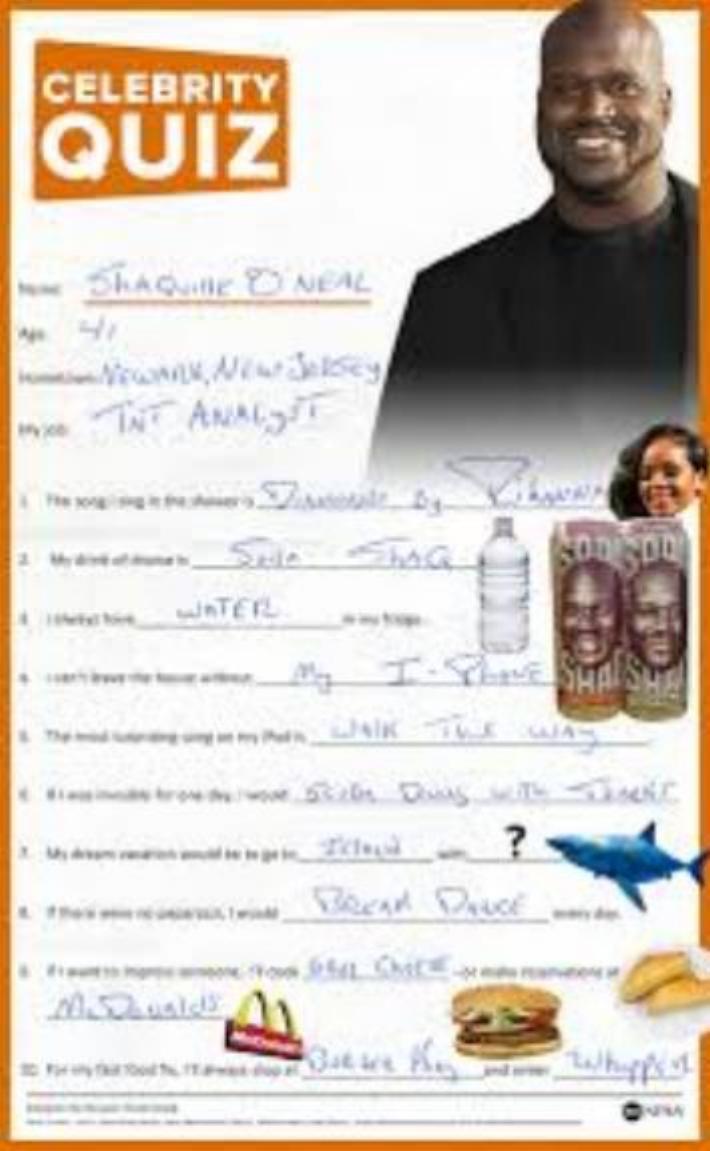 CELEBRITY
QUIZ
Name: SHAQUILLE O'NEAL
Age: 41
Hometown: NEWARK, NEW JERSEY
My job: TNT ANALYST
1. The song I sing in the shower is DIAMONDS By RIHANNA
2. My drink of choice is SODA SHAQ
3. I always have WATER in my fridge.
4. I can't leave the house without My I-PHONE
5. The most surprising song on my iPod is WALK THIS WAY
6. If I was invisible for one day, I would SCUBA DIVE WITH SHARKS
7. My dream vacation would be to go to ICELAND with ?
8. If there were no paparazzi, I would BREAK DANCE every day.
9. If I want to impress someone, I'll cook GRILL CHEESE or make reservations at
McDonalds
McDonald's
SODA SODA
SHAQ SHAQ
10. For my fast food fix, I'll always stop at BURGER King and order Whopper